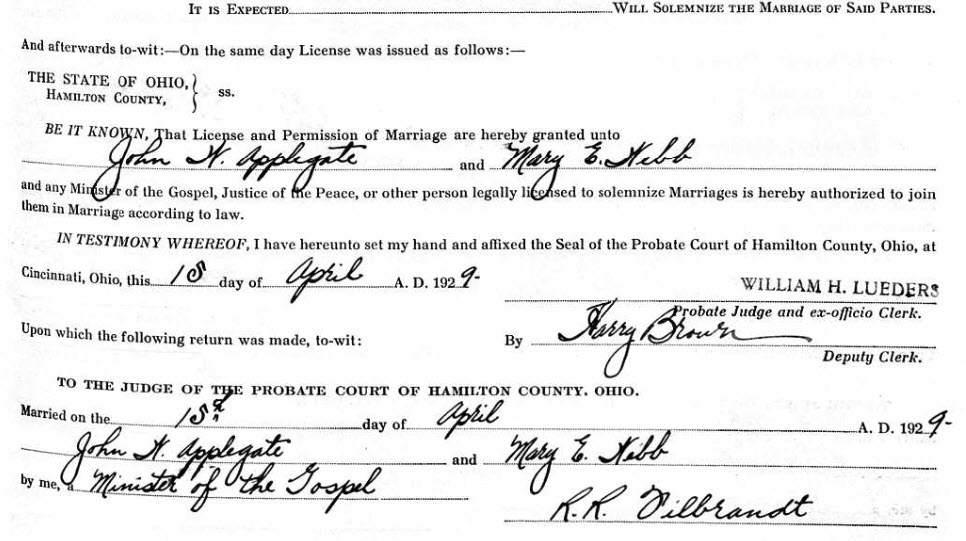 IT IS EXPECTED WILL SOLEMNIZE THE MARRIAGE OF SAID PARTIES.
And afterwards to-wit:—On the same day License was issued as follows:—
THE STATE OF OHIO,
HAMILTON COUNTY, } ss.
BE IT KNOWN, That License and Permission of Marriage are hereby granted unto
John W. Applegate and Mary E. Hibb
and any Minister of the Gospel, Justice of the Peace, or other person legally licensed to solemnize Marriages is hereby authorized to join
them in Marriage according to law.
IN TESTIMONY WHEREOF, I have hereunto set my hand and affixed the Seal of the Probate Court of Hamilton County, Ohio, at
Cincinnati, Ohio, this 1st day of April A. D. 1929-
WILLIAM H. LUEDERS
Probate Judge and ex-officio Clerk.
Upon which the following return was made, to-wit: By Harry Brown
Deputy Clerk.
TO THE JUDGE OF THE PROBATE COURT OF HAMILTON COUNTY, OHIO.
Married on the day of April A. D. 1929-
John W. Applegate and Mary E. Hibb
by me, a Minister of the Gospel
R. R. Vilbrandt